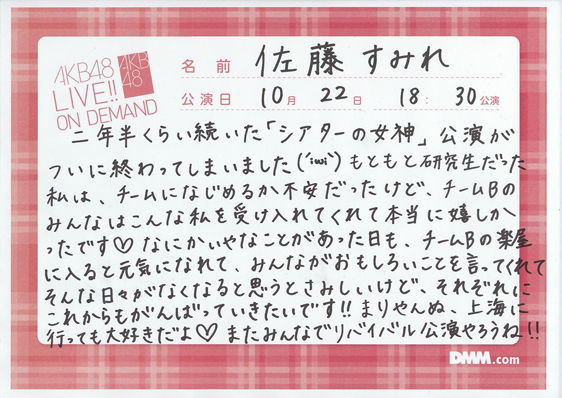 AKB48
LIVE!!
ON DEMAND
AKB
48
名前 佐藤すみれ
公演日 10月 22日 18:30公演
二年半くらい続いた「シアターの女神」公演が
ついに終わってしまいました(´;ω;`)もともと研究生だった
私は、チームになじめるか不安だったけど、チームBの
みんなはこんな私を受け入れてくれて本当に嬉しか
ったです♡なにかいやなことがあった日も、チームBの楽屋
に入ると元気になれて、みんながおもしろいことを言ってくれて
そんな日々がなくなると思うとさみしいけど、それぞれに
これからもがんばっていきたいです!!まりやんぬ、上海に
行っても大好きだよ♡またみんなでリバイバル公演やろうね!!
DMM.com